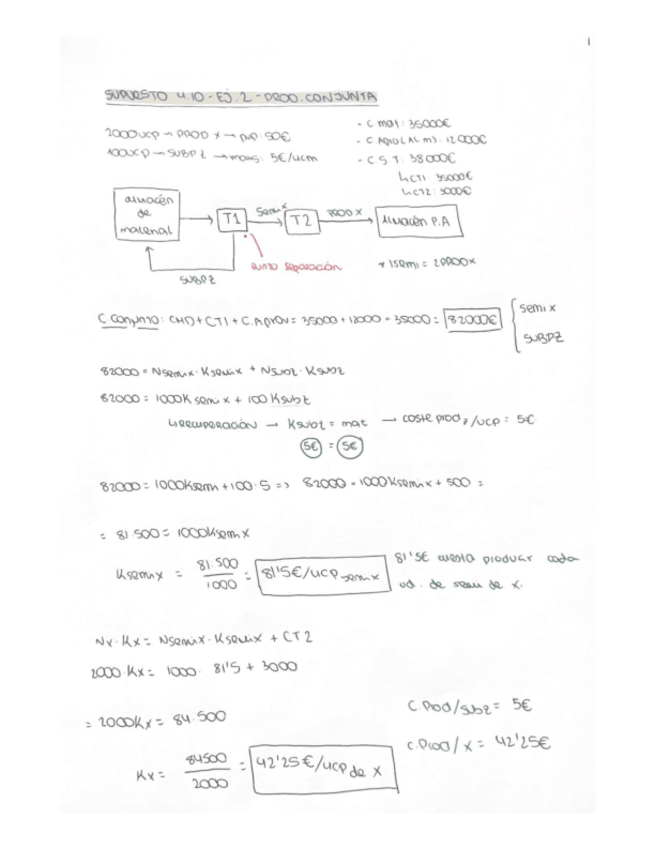 1
SUPUESTO 4.10 - EJ. 2 - PROD. CONJUNTA
2000 UCP → PROD X → PVP: 50€
100 UCP → SUBPZ → : 5€/ucm
- C mat: 35000€
- C APROV (AL M): 12000€
- C S T: 38000€
↳ CT1: 35000€
↳ CT2: 3000€
almacén de material
T1
Semix
T2
PROD X
Almacén P.A
SUBPZ
punto separación
* 1 semi = 2 PROD x
C. Conjunto: CMD + CT1 + C. Aprov = 35000 + 12000 + 35000 = 82000€
semi x
SUBPZ
82000 = Nsemix · Ksemix + Nsubz · Ksubz
82000 = 1000 K semi x + 100 K subz
↳ recuperación → Ksubz = mat → coste prod z/ucp = 5€
5€ = 5€
82000 = 1000 Ksemi + 100 · 5 => 82000 = 1000 Ksemi x + 500 =
= 81.500 = 1000 Ksemi x
Ksemix = 81.500 / 1000 = 81'5€/ucp semi x
81'5€ cuesta producir cada
ud. de semi de x.
Nx · Kx = Nsemix · Ksemix + CT2
2000 · Kx = 1000 · 81'5 + 3000
= 2000 Kx = 84.500
Kx = 84500 / 2000 = 42'25€/ucp de x
C. Prod/subz = 5€
C. Prod/x = 42'25€